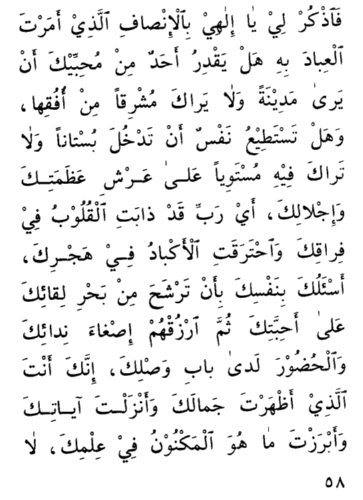 فَٱذْكُرْ لِيْ يٰا إِلٰهِيْ بِٱلْإِنْصافِ ٱلَّذِيْ أَمَرْتَ
ٱلْعِبادَ بِهِ هَلْ يَقْدِرُ أَحَدٌ مِنْ مُحِبِّيْكَ أَنْ
يَرىٰ مَدِيْنَةً وَلٰا يَراكَ مُشْرِقاً مِنْ أُفُقِها،
وَهَلْ تَسْتَطِيْعُ نَفْسٌ أَنْ تَدْخُلَ بُسْتاناً وَلٰا
تَراكَ فِيْهِ مُسْتَوِياً عَلىٰ عَرْشِ عَظَمَتِكَ
وَإِجْلالِكَ، أَيْ رَبِّ قَدْ ذابَتِ ٱلْقُلُوْبُ فِيْ
فِراقِكَ وَٱحْتَرَقَتِ ٱلْأَكْبادُ فِيْ هَجْرِكَ،
أَسْئَلُكَ بِنَفْسِكَ بِأَنْ تَرْشَحَ مِنْ بَحْرِ لِقائِكَ
عَلىٰ أَحِبَّتِكَ ثُمَّ ٱرْزُقْهُمْ إِصْغاءَ نِدائِكَ
وَٱلْحُضُوْرَ لَدىٰ بابِ وَصْلِكَ، إِنَّكَ أَنْتَ
ٱلَّذِيْ أَظْهَرْتَ جَمالَكَ وَأَنْزَلْتَ آياتِكَ
وَأَبْرَزْتَ ما هُوَ ٱلْمَكْنُوْنُ فِيْ عِلْمِكَ، لٰا
٥٨